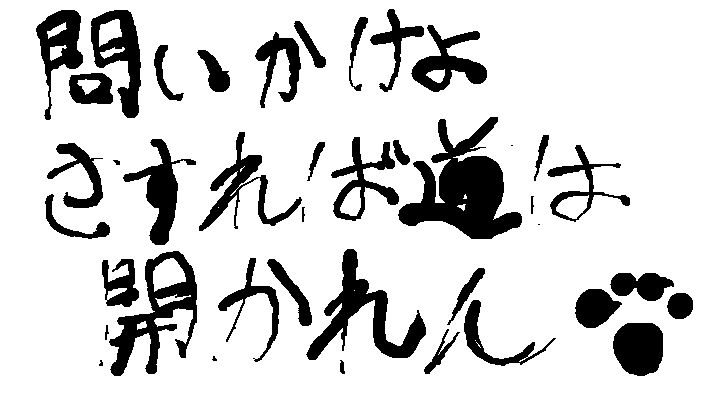 問いかけよ
さすれば道は
開かれん